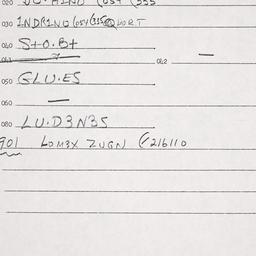 020
030 INDRINO (054 (355 HORT
040 S+O.B+
041 042 —
050 GLU.ES
060 —
080 LU.D3N3S
901 LOM3X ZUGN (216110